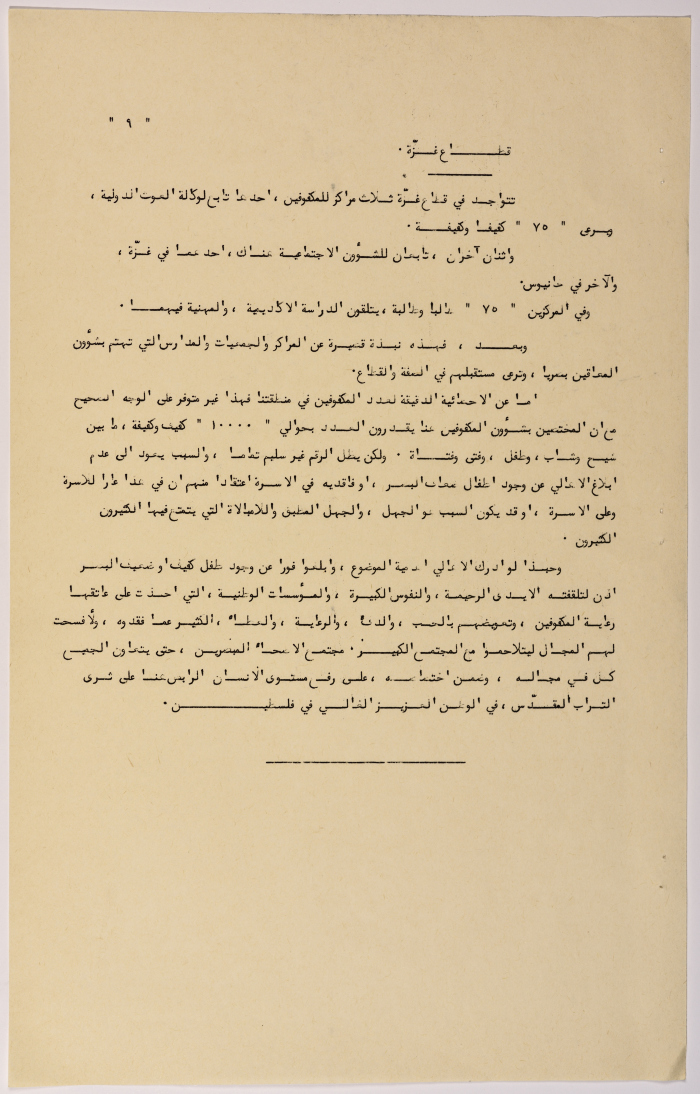 " ٩ "
قطـــــاع غـــزّة .
تتواجد في قطاع غزّة ثـلاث مراكز للمكفوفين ، احدها تابع لوكالة الغوث الدولية ،
ويرعى " ٧٥ " كفيفا وكفيفـــة .
واثنان آخران ، تابعان للشؤون الاجتماعية هناك ، احدهما في غزّة ،
والآخر في خانيونس .
وفي المركزين " ٧٥ " طالبا وطالبة ، يتلقون الدراسة الاكاديمية ، والمهنية فيهمـــا .
وبعـــد ، فهـذه نبـذة قصيرة عن المراكز والجمعيات والمدارس التي تهتم بشؤون
المعاقين بصريا ، وترعى مستقبلهم في الضفة والقطاع .
اما عن الاحصائية الدقيقة لعدد المكفوفين في منطقتنا فهذا غير متوفر على الوجه الصحيح
مع ان المختصين بشؤون المكفوفين هنا يقدرون العـدد بحوالي " ١٠٠٠٠ " كفيف وكفيفة ، ما بين
شيـخ وشاب ، وطفل ، وفتى وفتـــاة . ولكن يظل الرقم غير سليم تمامـا ، والسبب يعود الى عدم
ابلاغ الاهالي عن وجود اطفال ضعاف البصـر ، او فاقديه في الاسرة اعتقادا منهم ان في هذا عارا للاسرة
وعلى الاسرة ، او قد يكون السبب هو الجهل ، والجهل المطبق واللامبالاة التي يتمتع فيها الكثيرون
الكثيرون .
وحبـذا لو ادرك الاهالي اهمية الموضوع ، وابلغوا فورا عن وجود طفل كفيف او ضعيف البصـر
اذن لتلقفته الايـدي الرحيمة ، والنفوس الكبيـرة ، والمـؤسسات الوطنية ، التي اخـذت على عاتقهـا
رعاية المكفوفين ، وتعويضهم بالحب ، والدفء ، والرعاية ، والعطـاء ، الكثيـر عمـا فقدوه ، ولأفسحت
لهـم المجـال ليتلاحمـوا مع المجتمع الكبيـــر . مجتمع الاصحـاء المبصريـن ، حتى يتعاون الجميـع
كـل فـي مجالـه ، وضمن اختصاصـه ، علـى رفـع مستوى الانسـان الرابض هنـا على ثـرى
التـراب المقـدّس ، في الوطـن العـزيـز الغالـي في فلسطيـــــن .